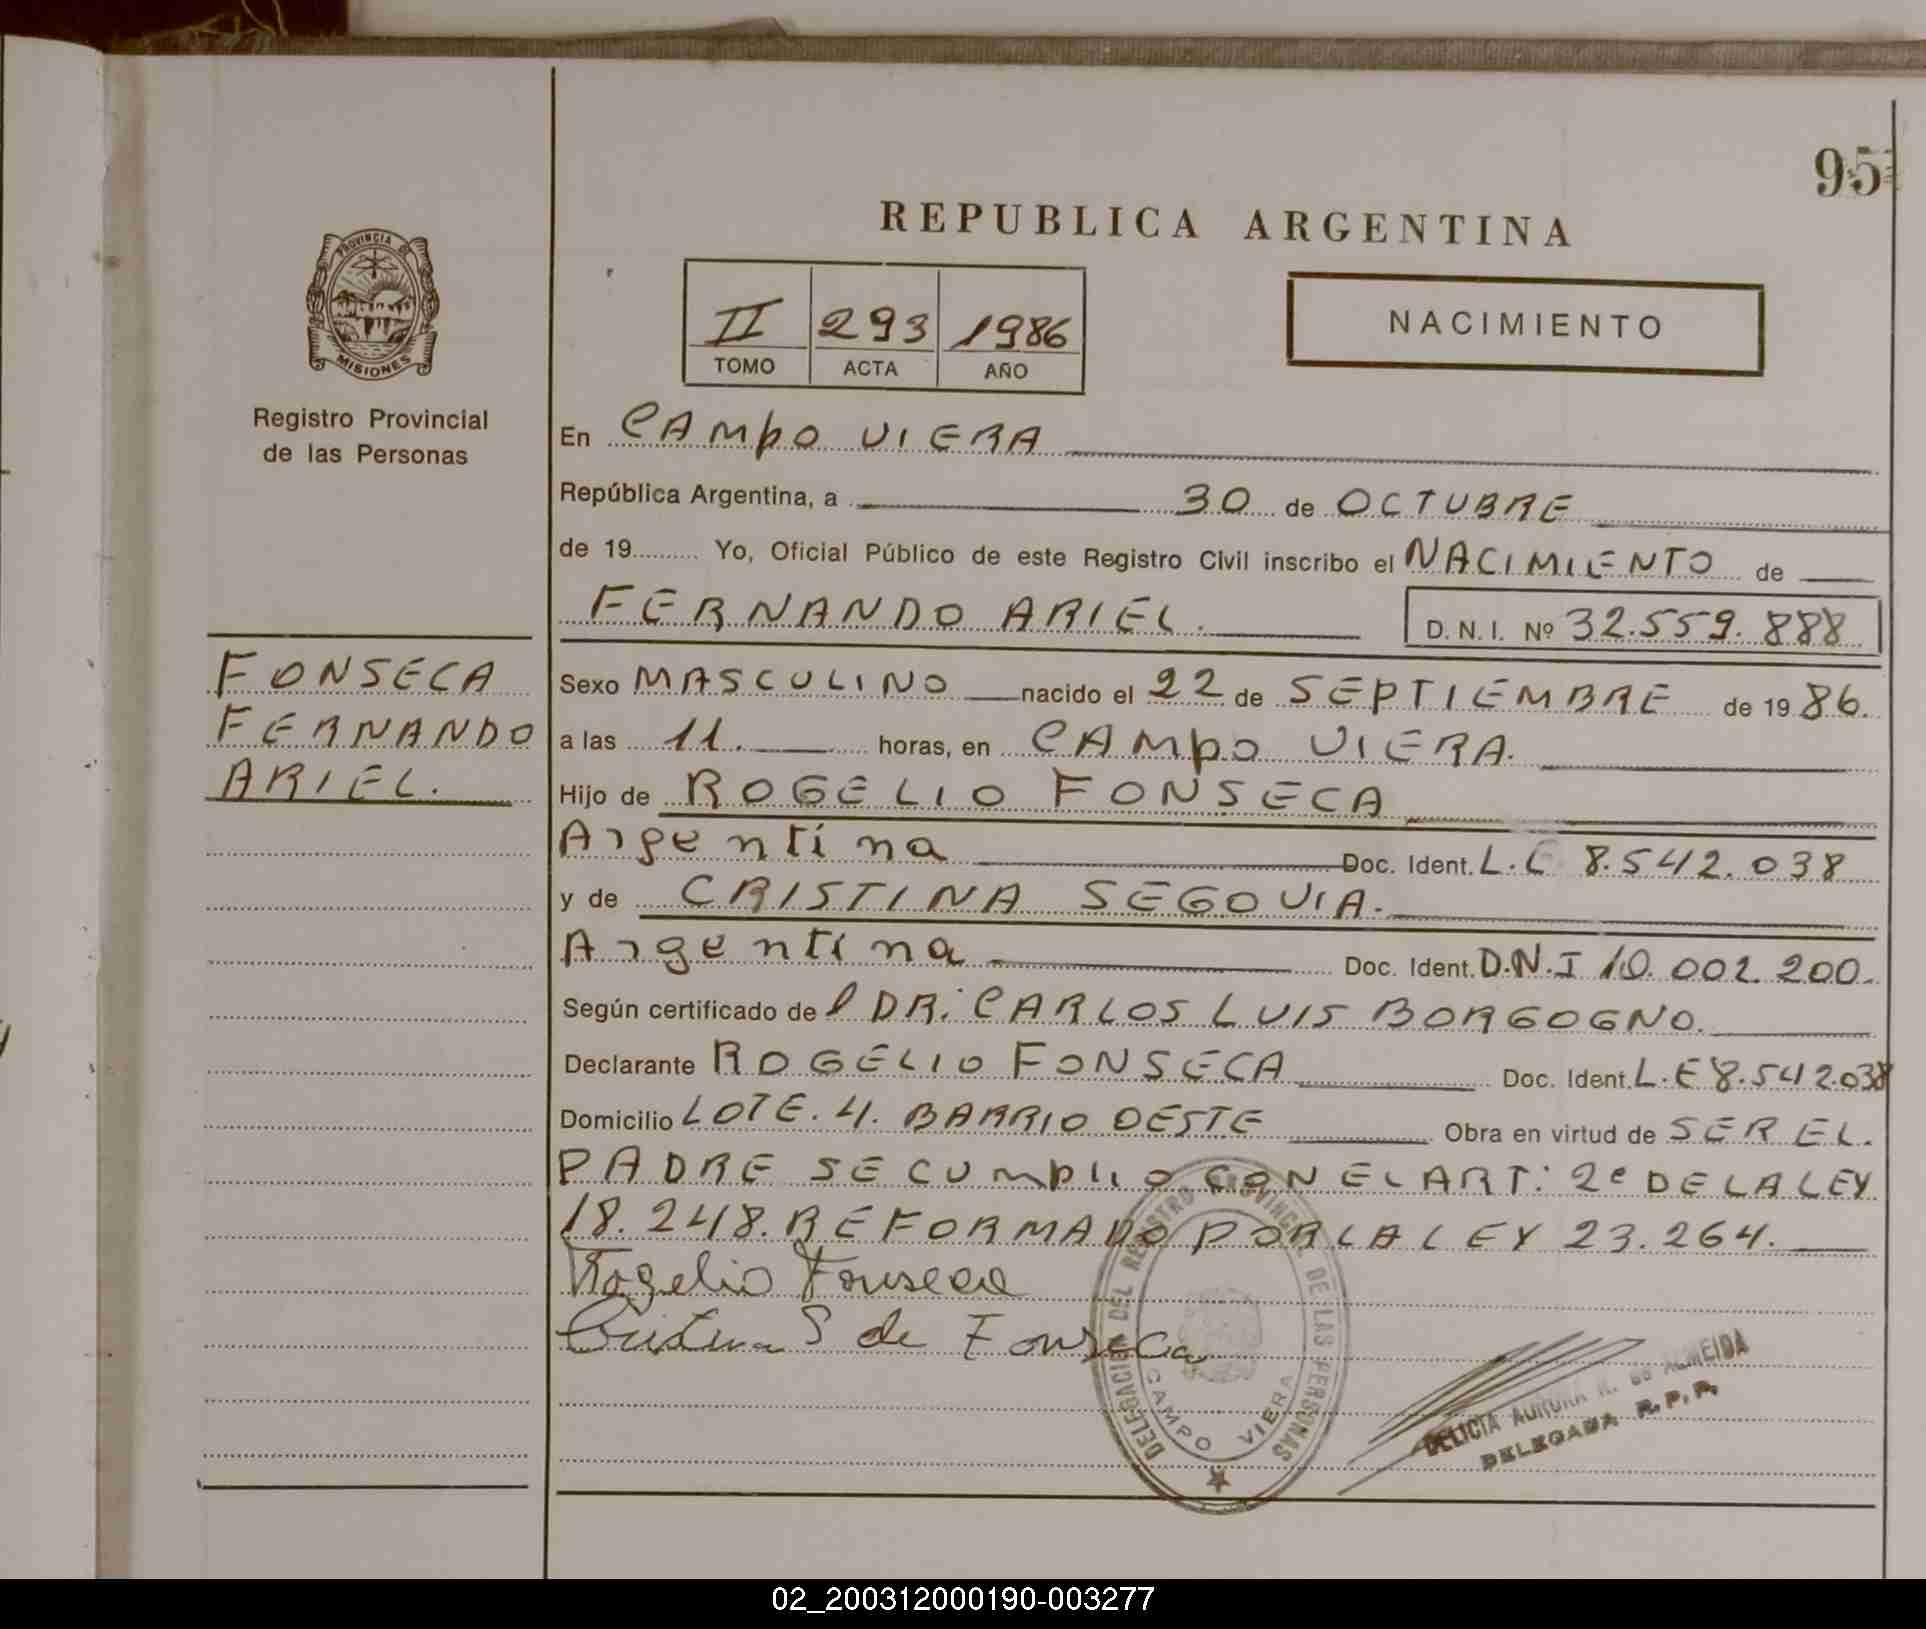 95
REPUBLICA ARGENTINA
PROVINCIA DE
MISIONES
Registro Provincial
de las Personas
II 293 1986
TOMO ACTA AÑO
NACIMIENTO
En CAMPO VIERA
República Argentina, a 30 de OCTUBRE
de 19 Yo, Oficial Público de este Registro Civil inscribo el NACIMIENTO de
FERNANDO ARIEL. D.N.I. Nº 32.559.888
FONSECA
FERNANDO
ARIEL.
Sexo MASCULINO nacido el 22 de SEPTIEMBRE de 1986.
a las 11. horas, en CAMPO VIERA.
Hijo de ROGELIO FONSECA
Argentina Doc. Ident. L. 8.542.038
y de CRISTINA SEGOVIA.
Argentina Doc. Ident. D.N.I 10.002.200.
Según certificado del DR. CARLOS LUIS BORGOGNO.
Declarante ROGELIO FONSECA Doc. Ident. L.E 8.542.038
Domicilio LOTE. 4. BARRIO OESTE Obra en virtud de SER EL.
PADRE SE CUMPLIO CON EL ART: 2º DE LA LEY
18.248. REFORMADO POR LA LEY 23.264.
Rogelio Fonseca
Cristina S de Fonseca
DELEGACION DEL REGISTRO PROVINCIAL DE LAS PERSONAS
CAMPO VIERA
DELICIA AURORA K. de ALMEIDA
DELEGADA R.P.P.
02_200312000190-003277